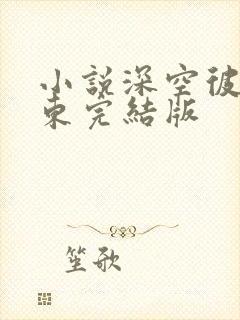 小說深空彼
東完結版
笙歌